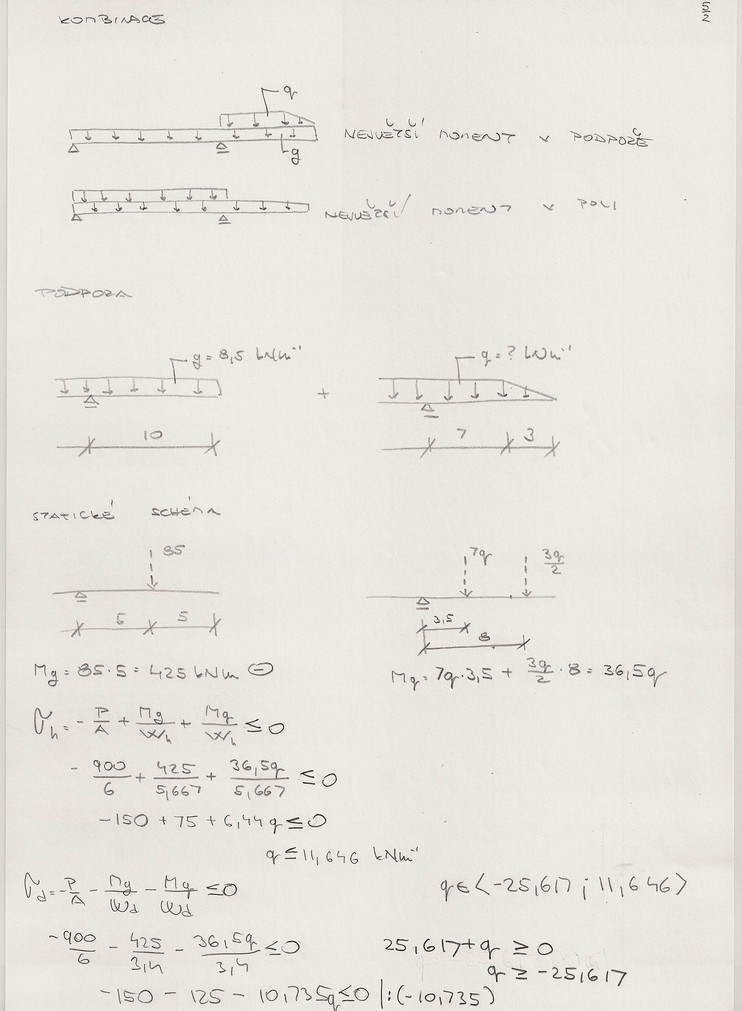 5/2
KOMBINACE
q
g
NEJVĚTŠÍ MOMENT V PODPOŘE
NEJVĚTŠÍ MOMENT V POLI
PODPORA
g = 8,5 kNm⁻¹ + q = ? kNm⁻¹
10 7 3
STATICKÉ SCHÉMA
85 7q 3q/2
5 5 3,5
8
Mg = 85·5 = 425 kNm ⊖ Mq = 7q·3,5 + 3q/2·8 = 36,5q
σh = -P/A + Mg/Wh + Mq/Wh ≤ 0
-900/6 + 425/5,667 + 36,5q/5,667 ≤ 0
-150 + 75 + 6,44q ≤ 0
q ≤ 11,646 kNm⁻¹
σd = -P/A - Mg/Wd - Mq/Wd ≤ 0 q ∈ ⟨-25,617 ; 11,646⟩
-900/6 - 425/3,4 - 36,5q/3,4 ≤ 0 25,617 + q ≥ 0
q ≥ -25,617
-150 - 125 - 10,735q ≤ 0 |:(-10,735)